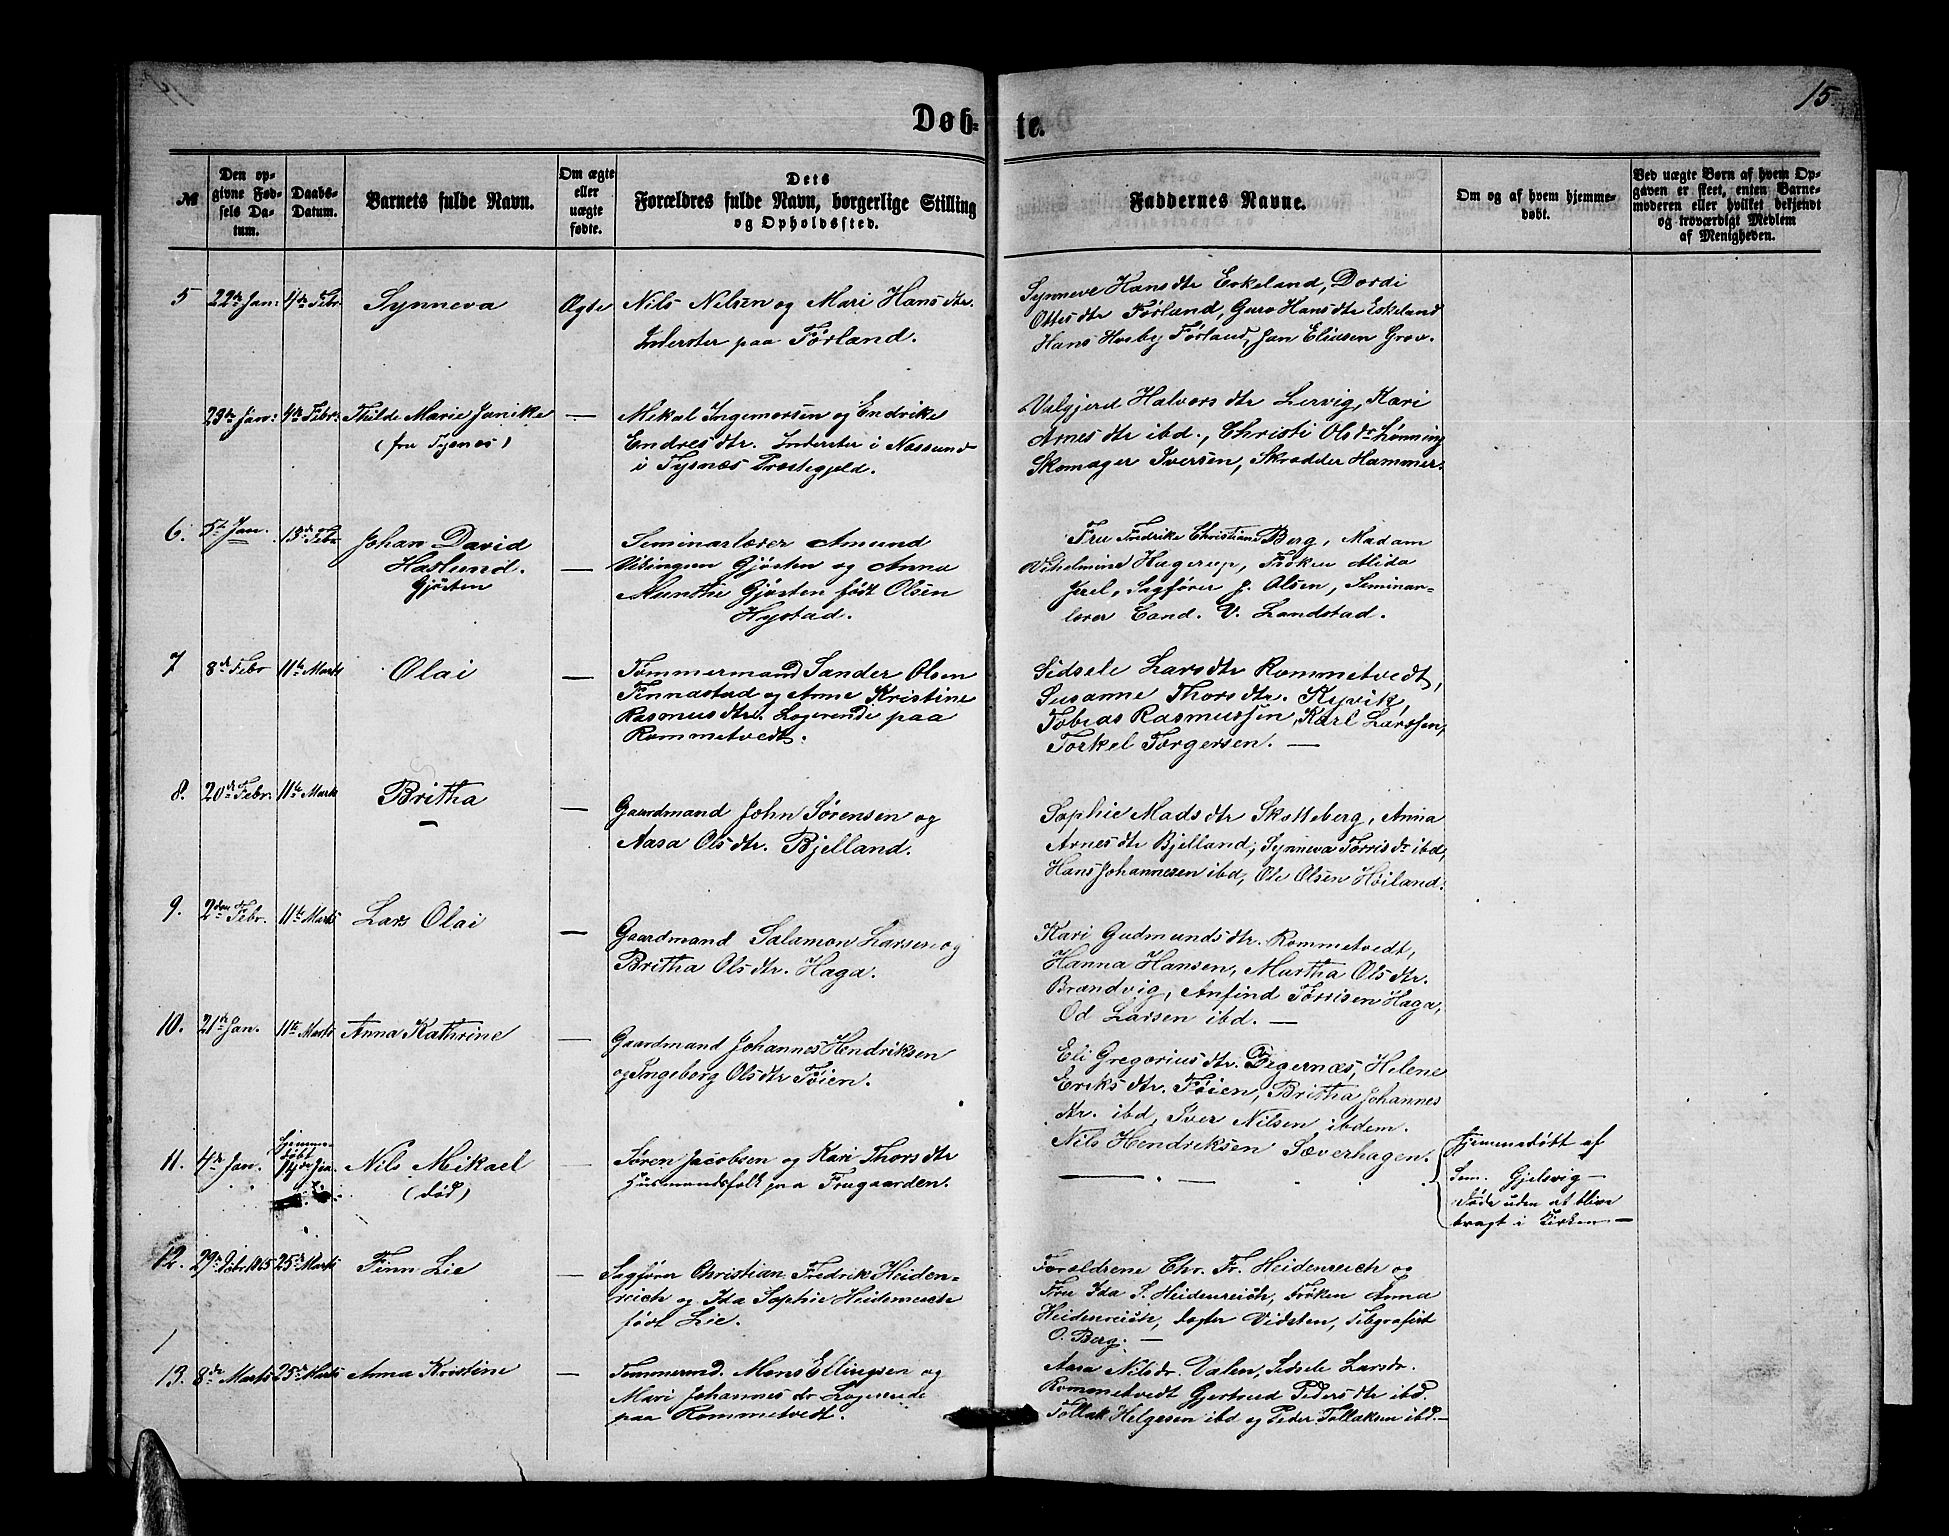 15
Døb-te.
№
Den opgivne Fødsels Datum.
Daabs-Datum.
Barnets fulde Navn.
Om ægte eller uægte fødte.
Dets Forældres fulde Navn, borgerlige Stilling og Opholdssted.
Faddernes Navne.
Om og af hvem hjemmedøbt.
Ved uægte Børn af hvem Opgaven er skeet, enten Barnemoderen eller hvilket bekjendt og troværdigt Medlem af Menigheden.
5 22de Jan: 4de Febr Synneva Ægte
Nils Nilsen og Mari Hansdtr.
Inderster paa Førland.
Synneve Hansdtr Eskeland, Dordi
Ottesdtr Førland, Guro Hansdtr Eskeland
Hans Husby Førland, Jan Eliasen Grov.
23de Jan: 4de Febr: Thilde Marie Janike —
(fra Tysnes)
Mikal Ingemorsen og Endrike
Endresdtr. Inderster i Nessund
i Tysnæs Præstegjeld.
Valgjerd Halvorsdtr Lervig, Kari
Arnesdtr ibd., Christi Olsdr Lønning
Skomager Iversen, Skrædder Hammer.
6. 5te Jan. 18de Febr Johan David
Haslund.
Gjøsten
—
Seminarlærer Amund
Vikingsen Gjøsten og Anna
Munthe Gjøsten født Olsen
Hystad.
Fru Fredrike Christiane Berg, Madam
Vilhelmine Hagerup, Frøken Alida
Juel, Sagfører J. Olsen, Seminar-
lærer Cand. V. Landstad.
7 8de Febr 11te Marts Olai —
Tømmermand Sander Olsen
Finnastad og Anne Kristine
Rasmusdtr. Logerende paa
Rommetvedt.
Sidsele Larsdtr Rommetvedt,
Susanne Thorsdtr. Kyvik,
Tobias Rasmussen, Karl Larssen,
Torkel Torgersen. —
8. 20de Febr: 11te Mark Britha —
Gaardmand John Sørensen og
Aasa Olsdtr. Bjelland.
Sophie Madsdtr Skotteberg, Anna
Arnesdtr Bjelland, Synneva Torrisdr ibd,
Hans Johannesen ibd, Ole Olsen Høiland.
9. 2den Febr. 11te Marts Lars Olai —
Gaardmand Salamon Larsen og
Britha Olsdtr. Haga.
Kari Gudmundsdtr. Rommetvedt,
Hanna Hansen, Martha Olsdtr.
Brandvig, Anfind Tørrisen Haga,
Od Larsen ibd. —
10. 21de Jan. 11te Marts Anna Kathrine —
Gaardmand Johannes Hendriksen
og Ingeborg Olsdtr Føien.
Eli Gregoriusdtr. Degernæs, Helene
Eriksdtr. Føien, Britha Johannes
dtr. ibd, Iver Nilsen ibdem.
Nils Hendriksen Sæverhagen.
11. 4de Jan. hjemme-
døbt
Jan. Nils Mikael —
(død)
Søren Jacobsen og Kari Thorsdtr
Husmandsfolk paa Frugaarden.
Hjemmedøbt af
Sem. Gjelsvig —
Døde uden at blive
bragt i Kirken —
12. 29de 1865 25de Marts Finn Lie —
Sagfører Christian Fredrik Heiden-
reich og Ida Sophie Heidenreich
født Lie.
Forældrene Chr. Fr. Heidenreich og
Fru Ida S. Heidenreich, Frøken Anna
Heidenreich, Vidsten, Telegrafist
O. Berg. —
13. 8de Marts 25de Marts Anna Kristine —
Tømmermd. Mons Ellingsen og
Mari Johannesdr Logerende
paa Rommetvedt.
Aasa Nilsdr. Valen, Sidsele Larsdr.
Rommetvedt Gjertrud Pedersdtr ibd.
Tollak Helgesen ibd og Peder Tollaksen ibd. —